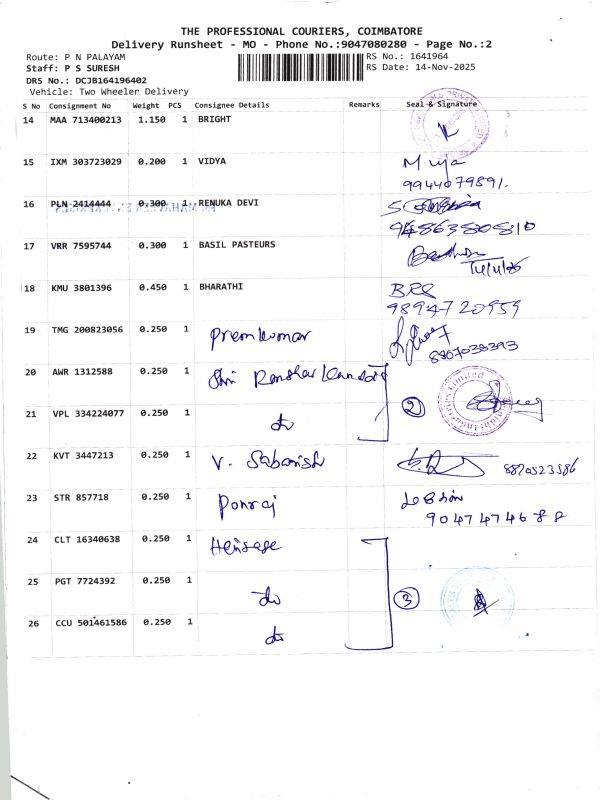 THE PROFESSIONAL COURIERS, COIMBATORE
Delivery Runsheet - MO - Phone No.:9047080280 - Page No.:2
Route: P N PALAYAM
RS No.: 1641964
Staff: P S SURESH
RS Date: 14-Nov-2025
DRS No.: DCJB164196402
Vehicle: Two Wheeler Delivery
S No Consignment No Weight PCS Consignee Details Remarks Seal & Signature
14 MAA 713400213 1.150 1 BRIGHT
15 IXM 303723029 0.200 1 VIDYA
9944079891.
16 PLN 2414444 0.300 1 RENUKA DEVI
9486380810
17 VRR 7595744 0.300 1 BASIL PASTEURS
14/11/25
18 KMU 3801396 0.450 1 BHARATHI BRS
9894720959
19 TMG 200823056 0.250 1 Premkumar
8807038393
20 AWR 1312588 0.250 1 Shri
21 VPL 334224077 0.250 1 do 2
22 KVT 3447213 0.250 1 V. Sabarish 8870523586
23 STR 857718 0.250 1 Ponraj
9047474688
24 CLT 16340638 0.250 1
25 PGT 7724392 0.250 1 do 3
26 CCU 501461586 0.250 1 do